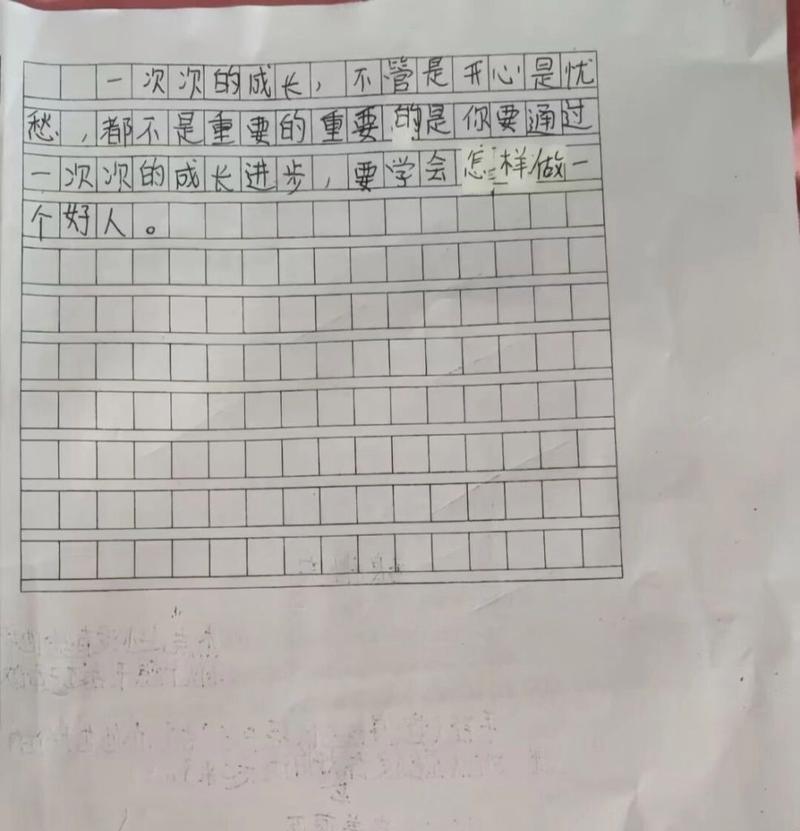 一次次的成长，不管是开心是忧
愁，都不是重要的重要的是你要通过
一次次的成长进步，要学会怎样做一
个好人。